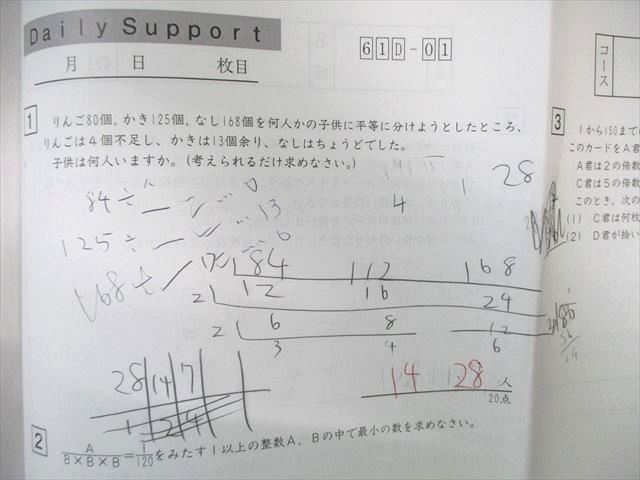 Daily Support
61D-01
月 日 枚目
1
りんご80個，かき125個，なし168個を何人かの子供に平等に分けようとしたところ、
りんごは4個不足し，かきは13個余り，なしはちょうどでした。
子供は何人いますか。（考えられるだけ求めなさい。）
4 1 28
84÷
13
125÷
0
168÷
84 112 168
2 12 16 24
2 6 8 12
3 4 6
28 14 7
1 2 4
14 28 人
20点
2
A/B×B×B=1/120をみたす1以上の整数A，Bの中で最小の数を求めなさい。
コース
3
1から150まで
このカードをA君
A君は2の倍数
C君は5の倍数
このとき，次の
(1) C君は何枚
(2) D君が拾い